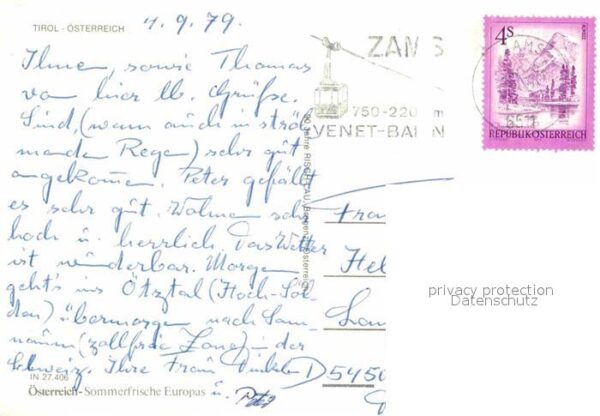 1.9.79.
TIROL - ÖSTERREICH
Ihnen, sowie Thomas
von hier lb. Grüße.
Sind, (wenn auch in strö-
mendem Regen) sehr gut
angekommen. Peter gefällt
es sehr gut. Wohnen sehr
hoch u. herrlich. Das Wetter
ist wunderbar. Morgen
geht's ins Ötztal (Hoch-Söl-
den) übermorgen nach Sam-
naun (zollfreie Zone) in der
Schweiz. Ihre Frau
u. Peter
IN 27.406
Österreich - Sommerfrische Europas
ZAMS
750-220 m
VENET-BAHN
ZAMS
6511
4S
REPUBLIK ÖSTERREICH
Frau
Hel
D 5450
privacy protection
Datenschutz